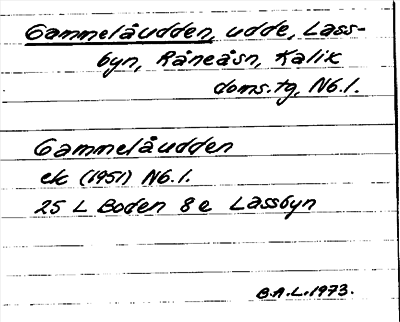 Gammelåudden, udde, Lass-
byn, Råneåsn, Kalix
doms.tg, Nb.l.
Gammelåudden
ek (1951) Nb.l.
25 L Boden 8e Lassbyn
B.A.L.1973.